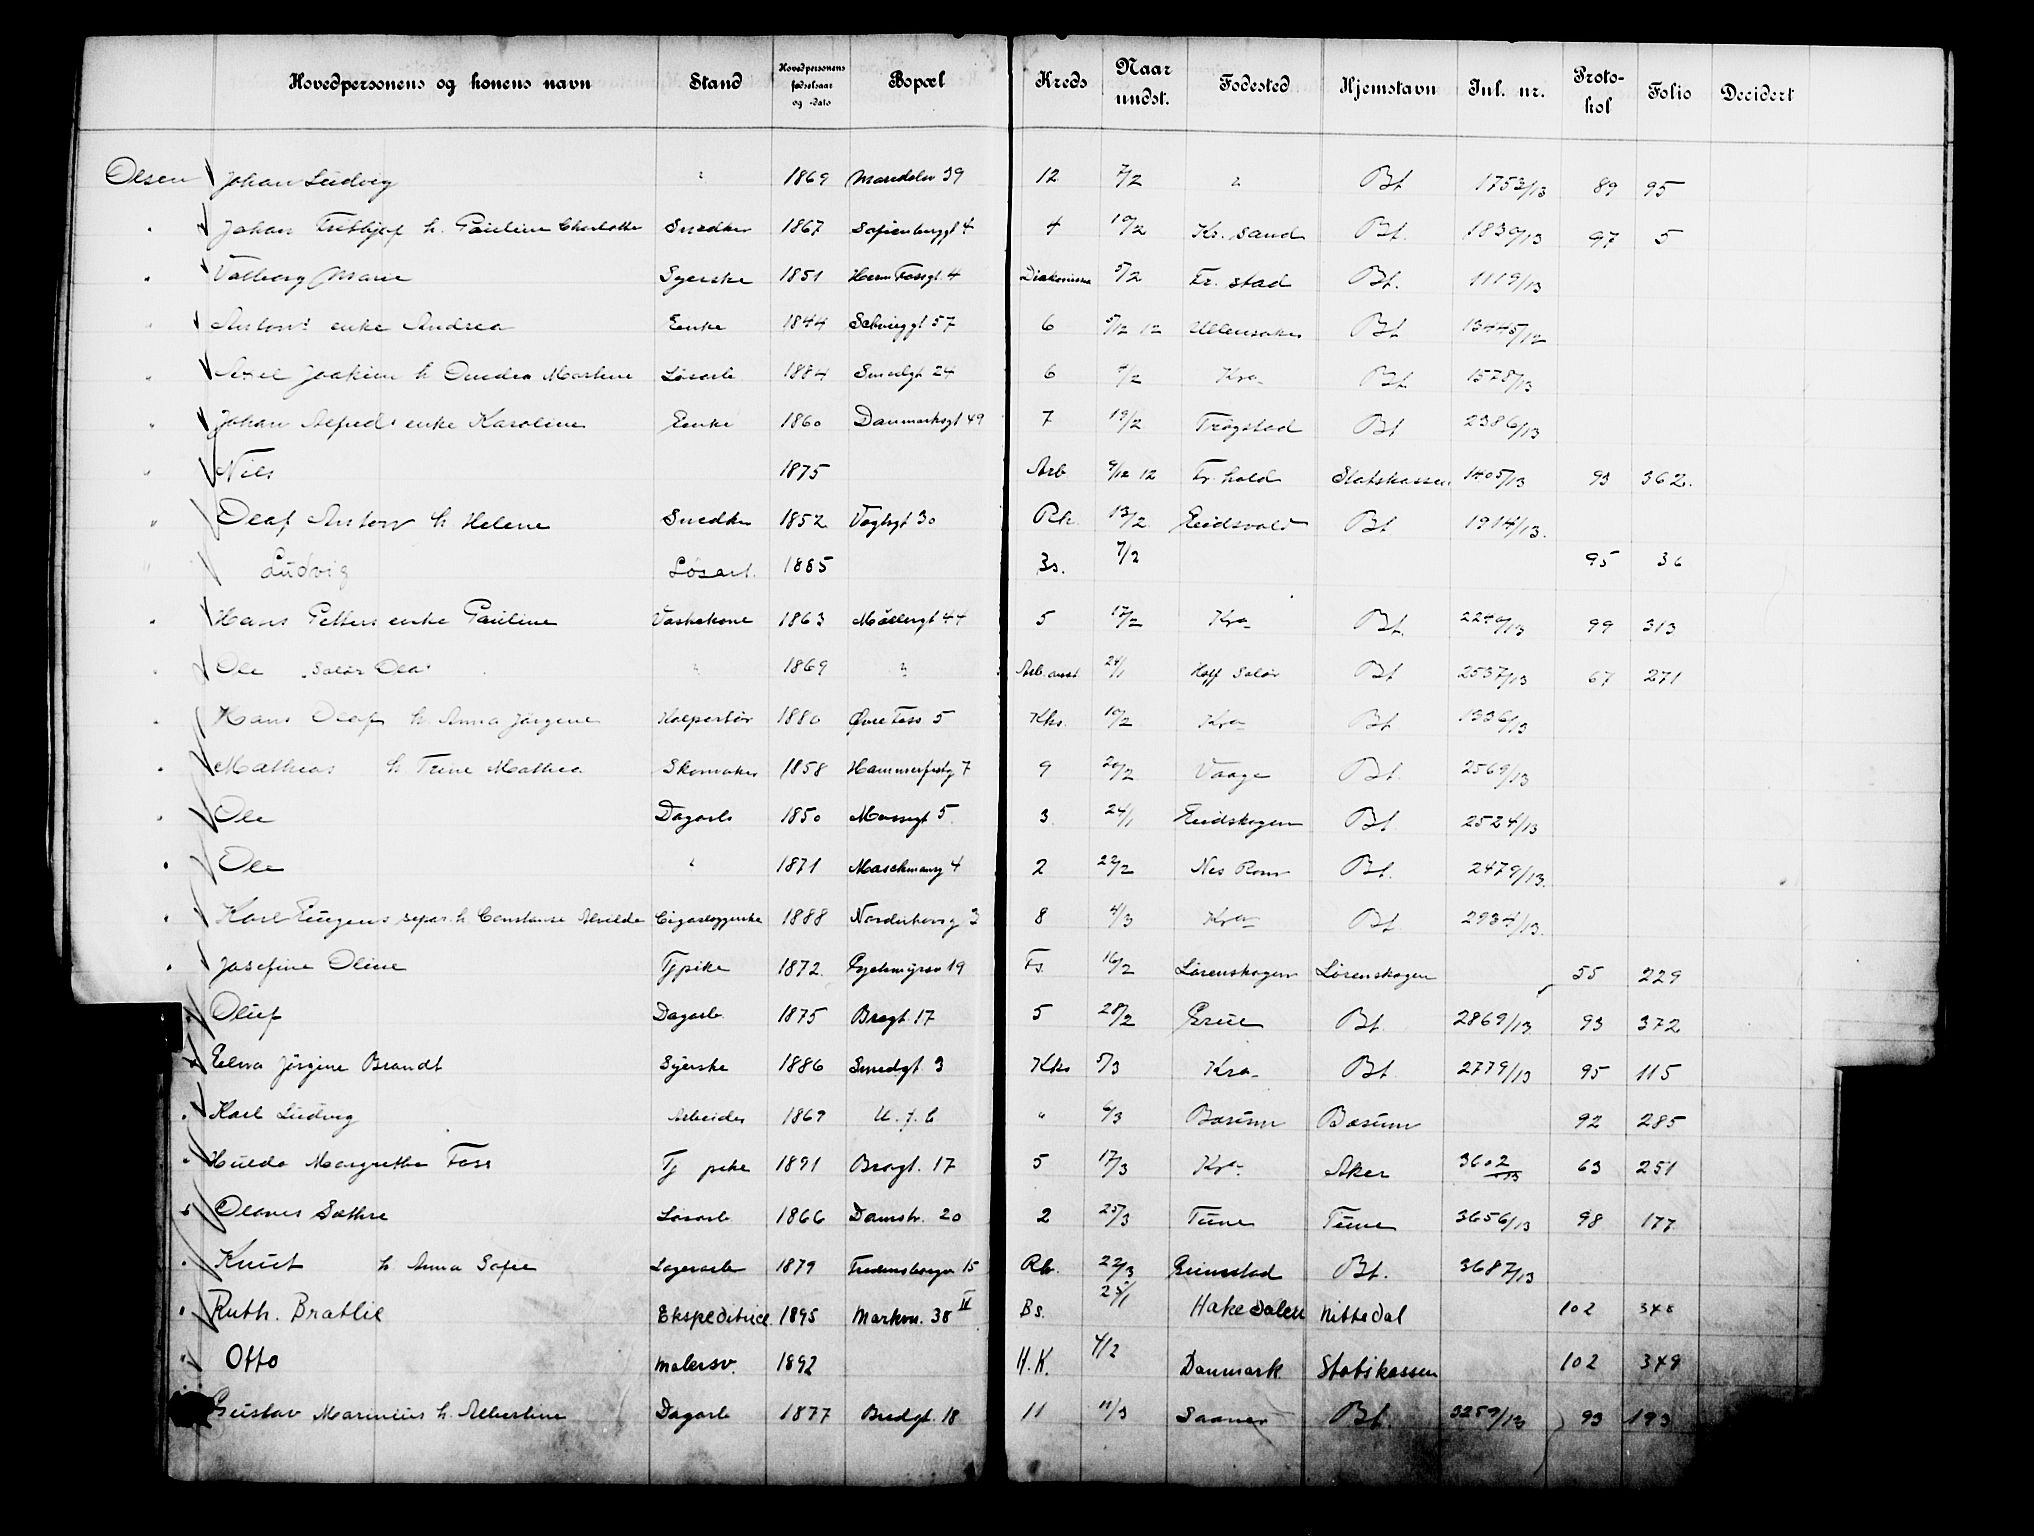 Hovedpersonens og konens navn Stand Hovedpersonens fødselsaar og -dato Bopæl Kreds Naar undst. Fødested Hjemstavn Jnl. nr. Proto-kol Folio Decidert
Olsen Johan Ludvig " 1869 Maridalsv 39 12 7/2 " Bt 1753/13 89 95
" Johan Fritjof h. Pauline Charlotte Snedker 1867 Sofienberggt 4 4 10/2 Kr. sand Bt. 1830/13 97 5
" Valborg Marie Syerske 1851 Herm Fossgt. 4 Diakoniss 5/2 Fr. stad Bt. 1119/13
" Antons enke Andrea Enke 1844 Schweiggt 57 6 5/12 12 Ullensaker Bt 13445/12
" Axel Joakim h Andrea Martine Løsarb 1884 Smedgt 24 6 /2 Kra Bt 1575/13
" Johan Alfreds enke Karoline Enke 1860 Danmarksgt 49 7 19/2 Trøgstad Bt 2386/13
" Nils 1875 Arb 9/12 12 Fr. hald Statskassen 1405/13 93 362.
" Olaf Anton h Helene Snedker 1852 Vogtsgt 30 Rh. 13/2 Eidsvold Bt 1914/13.
" Ludvig Løsarb. 1885 Bs. 7/2 95 36
" Hans Petters enke Pauline Vaskekone 1863 Møllergt 44 5 17/2 Kra Bt. 2240/13 99 313
" Ole "Solør Ola" " 1869 " Arb. anst 24/1 Hoff Solør Bt 2537/13 67 271
" Hans Olaf h Anna Jørgine Kolportør 1880 Øvre Foss 5 Khs. 10/2 Kra Bt 1336/13
" Mathias h Trine Mathea Skomaker 1858 Hammerfestg 7 9 20/2 Vaage Bt. 2569/13
" Ole Dagarb 1850 Mossgt 5. 3. 24/1 Eidskogen Bt 2524/13
" Ole " 1871 Maschmansg 4 2 22/2 Nes Rom Bt. 2479/13.
" Karl Eugens separ. h. Constanse Alvilde Cigarlæggerske 1888 Norderhovsg 3 8 4/3 Kra Bt. 2934/13.
" Josefine Oline Tjpike 1872. 19 Fs. 16/2 Lørenskogen Lørenskogen 55 229
" Oluf Dagarb. 1875 Bragt. 17 5 28/2 Grue Bt. 2869/13 93 372
" Elna Jørgine Brandt Syerske 1886 Smedgt. 3 Khs 5/3 Kra Bt. 2779/13 95 115
" Karl Ludvig Arbeider 1869 U. f. b " 6/3 Bærum Bærum 92 285
" Hulda Margrethe Foss Tj pike 1891 Bragt. 17 5 17/3 Kra Aker 3602/13 63 251
" Olaves Sæthre Løsarb 1866 Damstr. 20 2 25/3 Tune Tune 3656/13 98 177
" Knut h Anna Sofie Lagerarb 1879 Fredensborgv 15 Rh. 22/3 Grimstad Bt. 3687/13
" Ruth. Bratlie Ekspeditrice 1895 Markvn. 38 II Bs. 25/1 Hakedalen Nittedal 102 348
" Otto malersv. 1892 H.K. 4/2 Danmark Statskassen 102 349
Gustav Marinius h. Albertine Dagarb 1877 Bredgt. 18 11 11/3 Saaner Bt. 3259/13 93 193